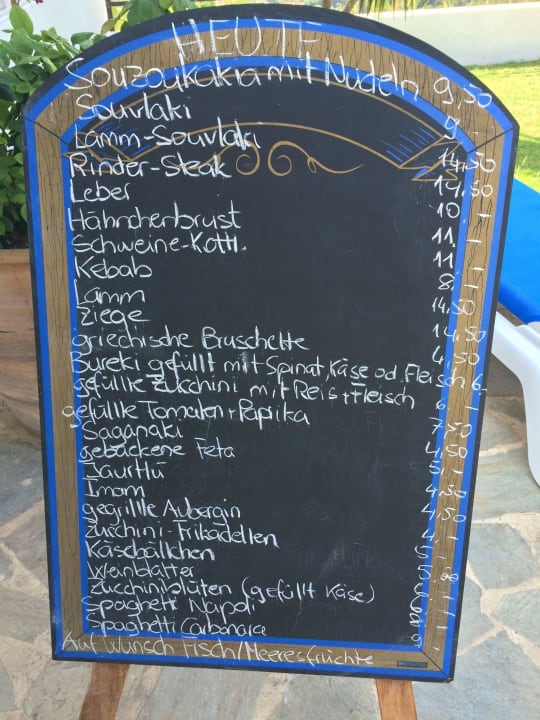 HEUTE
Souzoukakia mit Nudeln 9,50
Souvlaki 9.-
Lamm-Souvlaki 14,50
Rinder-Steak 14,50
Leber 10.-
Hähnchenbrust 11.-
Schweine-Kottl. 11.-
Kebab 8.-
Lamm 14,50
Ziege 14,50
griechische Bruschette 4,50
Bureki gefüllt mit Spinat, Käse od. Fleisch 6.-
gefüllte Zucchini mit Reis+Fleisch 6.-
gefüllte Tomaten+Paprika 7,50
Saganaki 4,50
gebackene Feta 5.-
4,50
Imam 4,50
gegrillte Aubergin 4.-
Zucchini-Frikadellen
Käsebällchen
Weinblätter
Zucchiniblüten (gefüllt Käse)
Spaghetti Napoli
Spaghetti Carbonara
Auf Wunsch Fisch/Meeresfrüchte